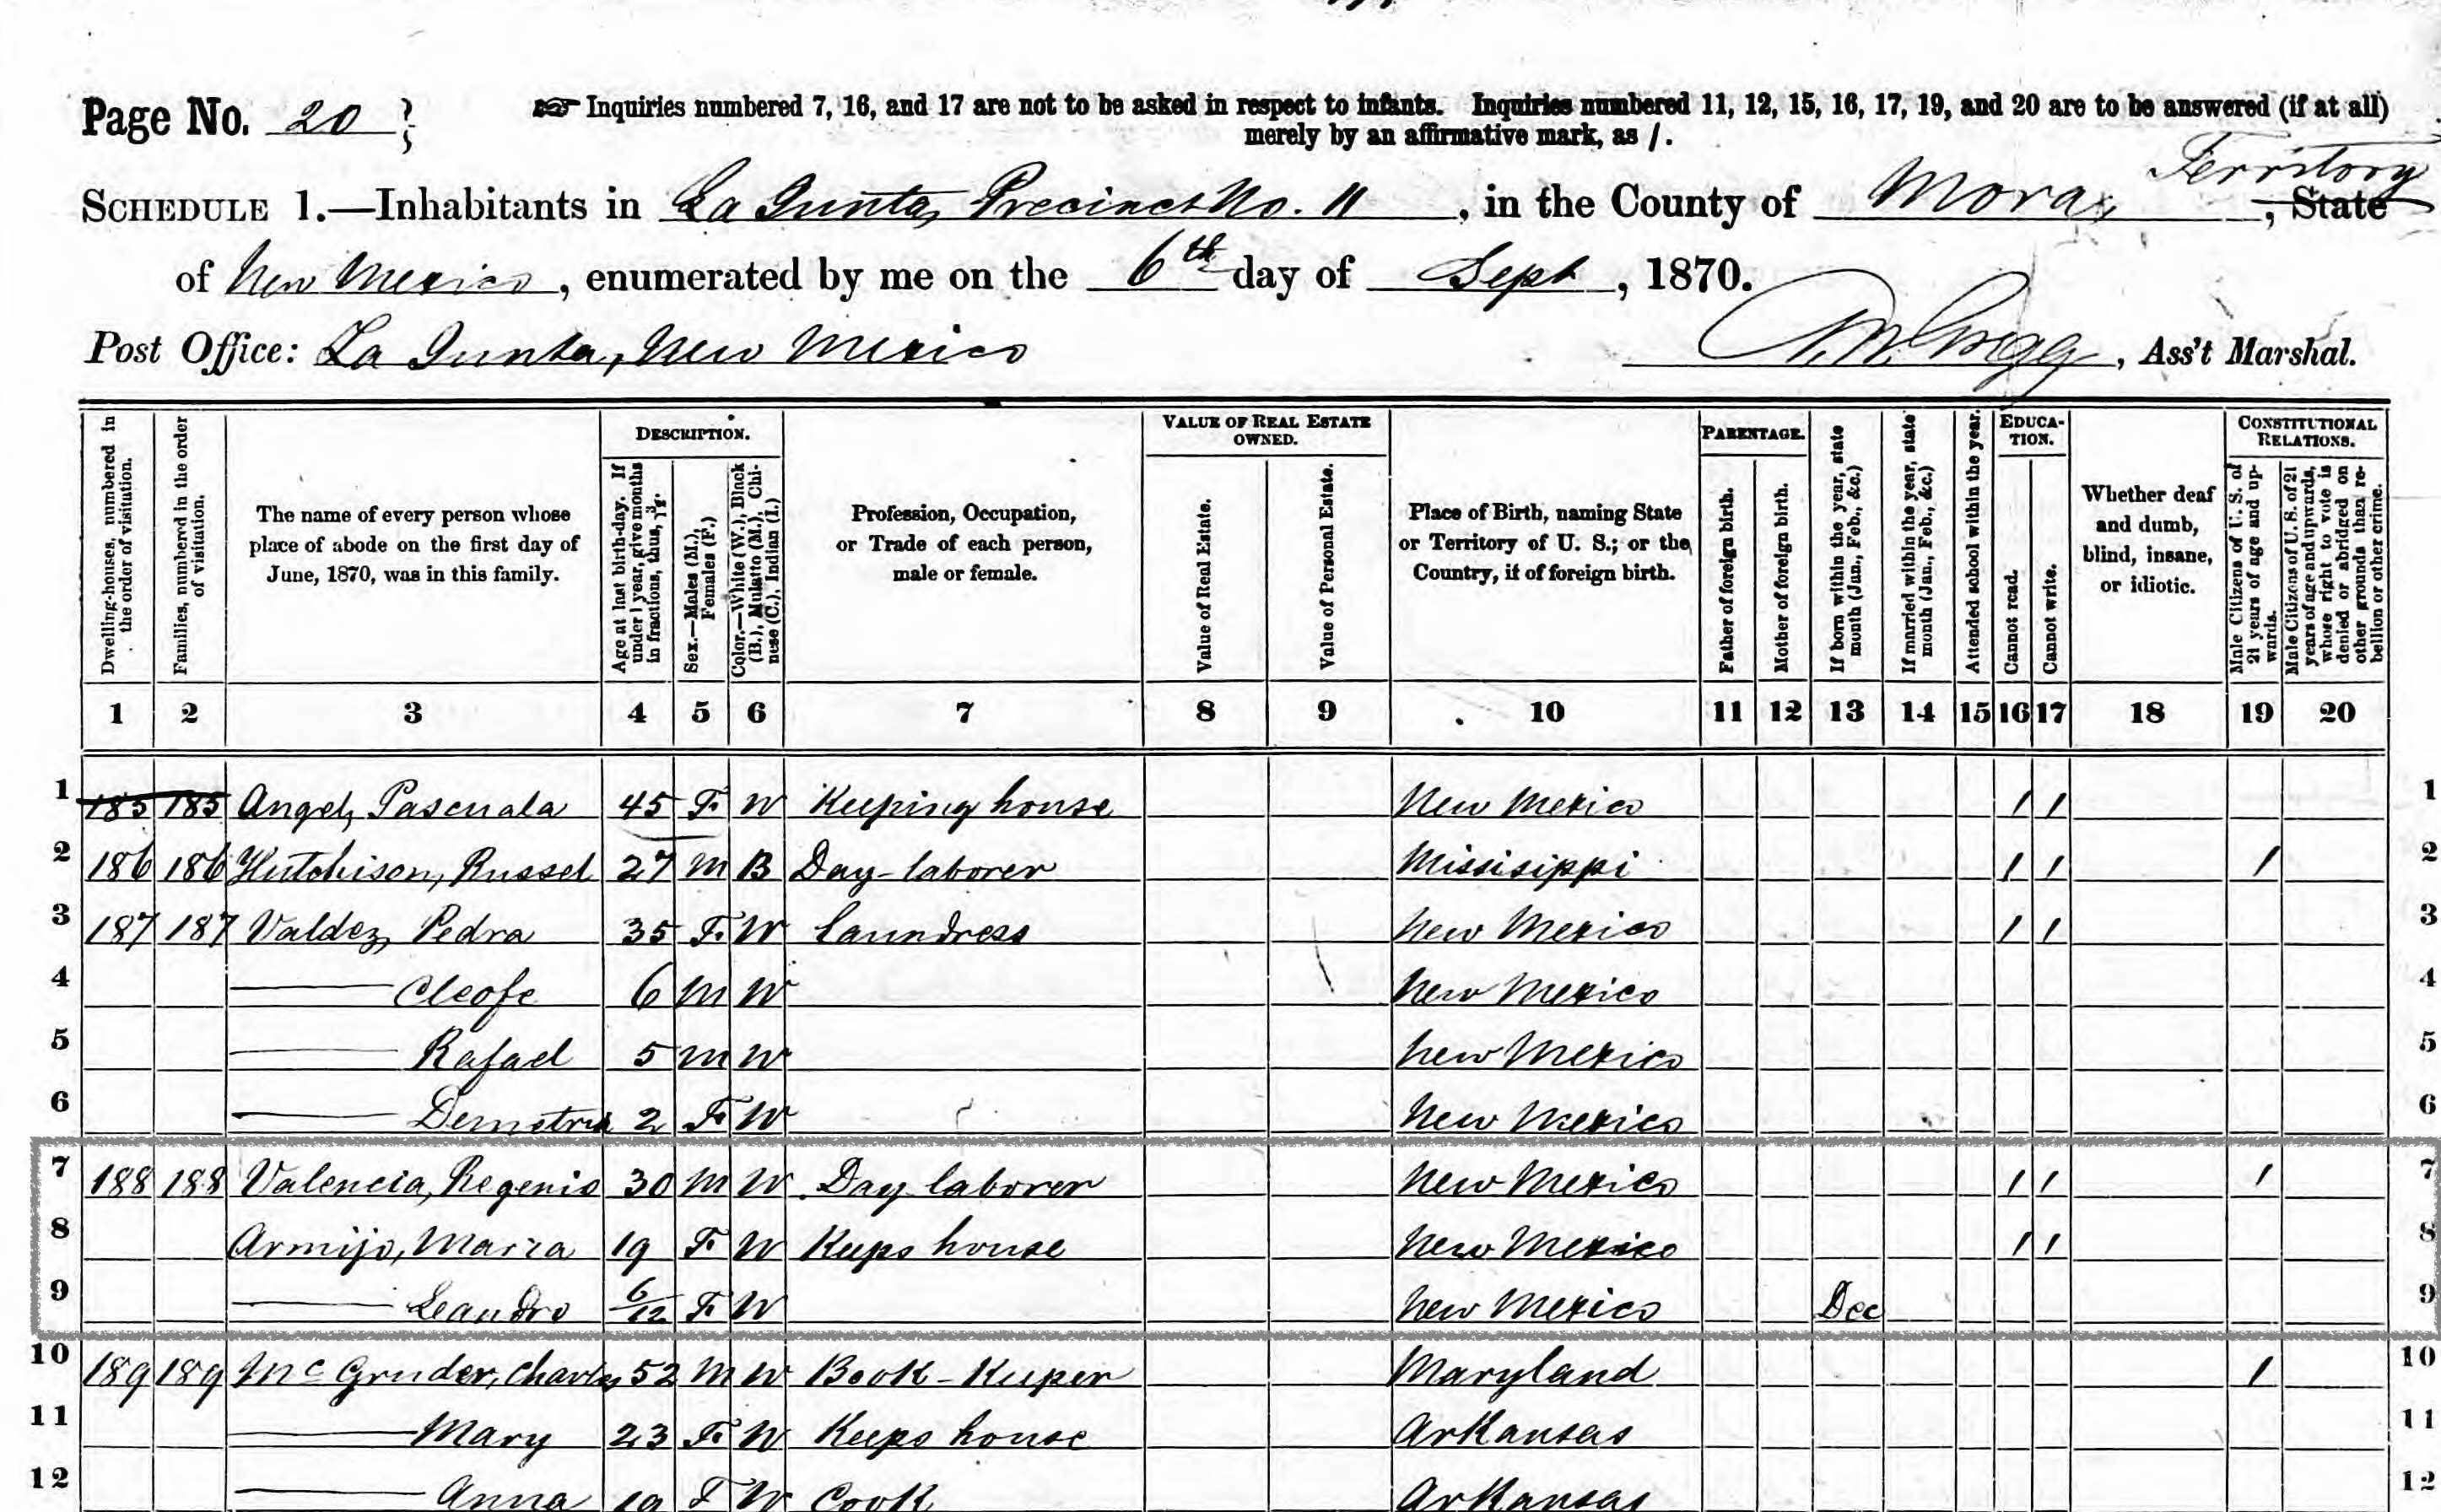 Page No. 20
Inquiries numbered 7, 16, and 17 are not to be asked in respect to infants. Inquiries numbered 11, 12, 15, 16, 17, 19, and 20 are to be answered (if at all)
merely by an affirmative mark, as /.
Territory
SCHEDULE 1.—Inhabitants in La Junta, Precinct No. 11, in the County of Mora, State
of New Mexico, enumerated by me on the 6th day of Sept, 1870.
Post Office: La Junta, New Mexico
Gregg, Ass't Marshal.
Dwelling-houses, numbered in the order of visitation.
Families, numbered in the order of visitation.
The name of every person whose place of abode on the first day of June, 1870, was in this family.
DESCRIPTION.
Age at last birth-day. If under 1 year, give months in fractions, thus, 3/12.
Sex.—Males (M.), Females (F.)
Color.—White (W.), Black (B.), Mulatto (M.), Chinese (C.), Indian (I.)
Profession, Occupation, or Trade of each person, male or female.
VALUE OF REAL ESTATE OWNED.
Value of Real Estate.
Value of Personal Estate.
Place of Birth, naming State or Territory of U. S.; or the Country, if of foreign birth.
PARENTAGE.
Father of foreign birth.
Mother of foreign birth.
If born within the year, state month (Jan., Feb., &c.)
If married within the year, state month (Jan., Feb., &c.)
Attended school within the year.
EDUCATION.
Cannot read.
Cannot write.
Whether deaf and dumb, blind, insane, or idiotic.
CONSTITUTIONAL RELATIONS.
Male Citizens of U. S. of 21 years of age and upwards.
Male Citizens of U. S. of 21 years of age and upwards, whose right to vote is denied or abridged on other grounds than rebellion or other crime.
1 2 3 4 5 6 7 8 9 10 11 12 13 14 15 16 17 18 19 20
1 185 185 Angel, Pascuala 45 F. W Keeping house New Mexico / / 1
2 186 186 Hutchison, Russel 27 M B Day laborer Missisippi / / / 2
3 187 187 Valdez, Pedra 35 F. W Laundress New Mexico / / 3
4 —— Cleofe 6 M W New Mexico 4
5 —— Rafael 5 M W New Mexico 5
6 —— Demetria 2 F. W New Mexico 6
7 188 188 Valencia, Regenio 30 M W Day laborer New Mexico / / / 7
8 Armijo, Maria 19 F. W Keeps house New Mexico / / 8
9 —— Leandro 6/12 F. W New Mexico Dec 9
10 189 189 McGruder, Charles 52 M W Book-Keeper Maryland / 10
11 —— Mary 23 F. W Keeps house Arkansas 11
12 —— Anna 19 F W Cook Arkansas 12